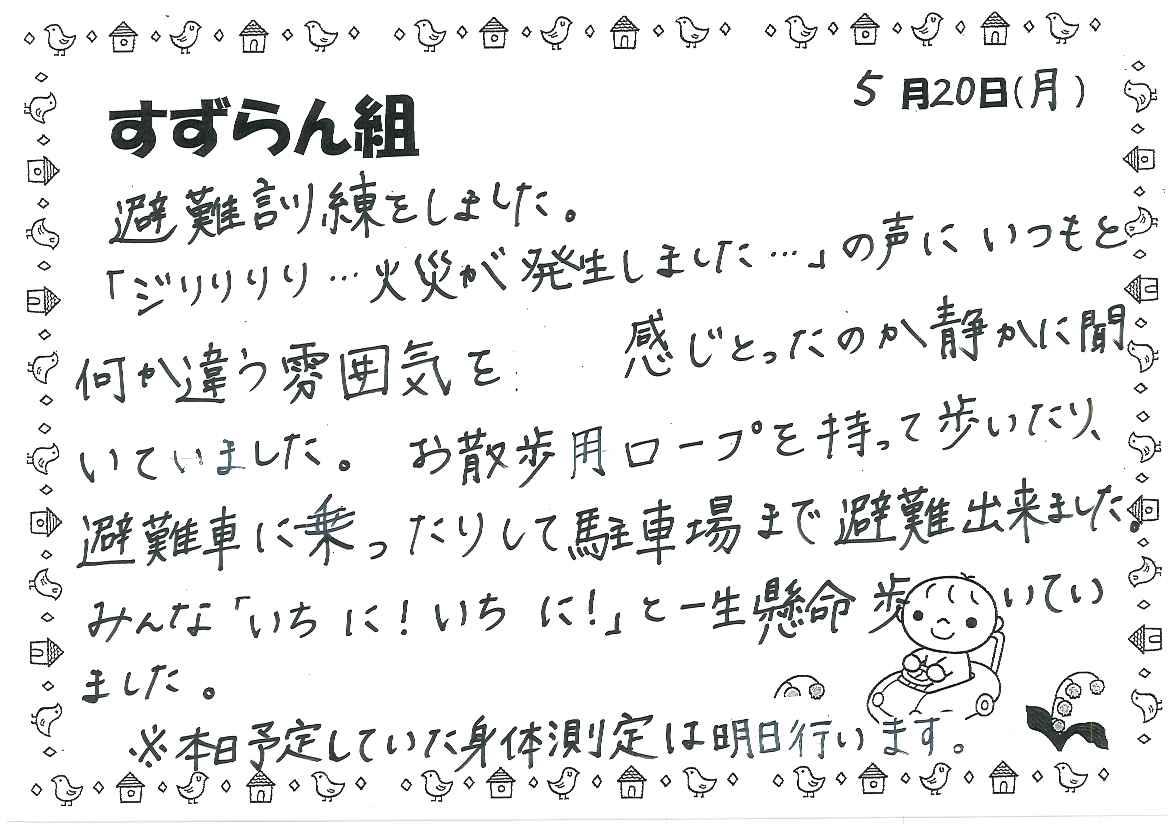 5月20日(月)
すずらん組
避難訓練をしました。
「ジリリリリ…火災が発生しました…」の声に いつもと
何か違う雰囲気を 感じとったのか静かに聞
いていました。 お散歩用ロープを持って歩いたり、
避難車に乗ったりして駐車場まで避難出来ました。
みんな「いち に!いち に!」と一生懸命歩いてい
ました。
※本日予定していた身体測定は明日行います。